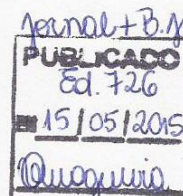 Jornal + B.J
PUBLICADO
Ed. 726
15/05/2015